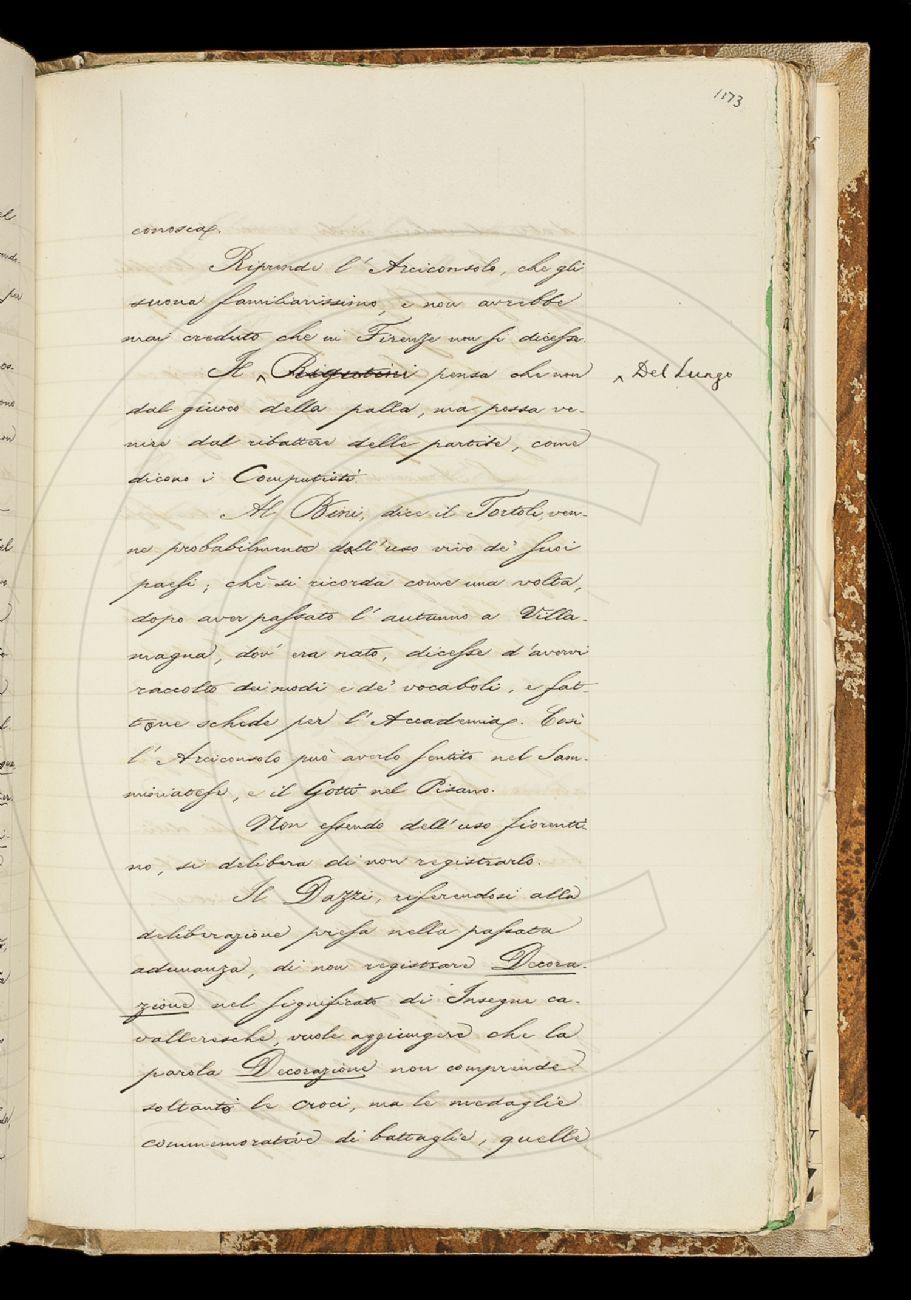 1173
conosca.
Riprende l'Arciconsolo, che gli
suona famigliarissimo, e non avrebbe
mai creduto che in Firenze non si dicesse.
Il ‸ Rigutini pensa che non ‸ Del Lungo
dal giuoco della palla, ma possa ve-
nire dal ribattere delle partite, come
dicono i Computisti.
Al Bini, dice il Tortoli, ven-
ne probabilmente dall'uso vivo de' suoi
paesi; chè si ricorda come una volta,
dopo aver passato l'autunno a Villa-
magna, dov'era nato, dicesse d'avervi
raccolto dei modi e de' vocaboli, e fat-
tone schede per l'Accademia. Così
l'Arciconsolo può averlo sentito nel Sam-
miniatese, e il Gotti nel Pisano.
Non essendo dell'uso fiorenti-
no, si delibera di non registrarlo.
Il Dazzi, riferendosi alla
deliberazione presa nella passata
adunanza, di non registrare Decora-
zione nel significato di Insegne ca-
valleresche, vuole aggiungere che la
parola Decorazione non comprende
soltanto le croci, ma le medaglie
commemorative di battaglie, quelle